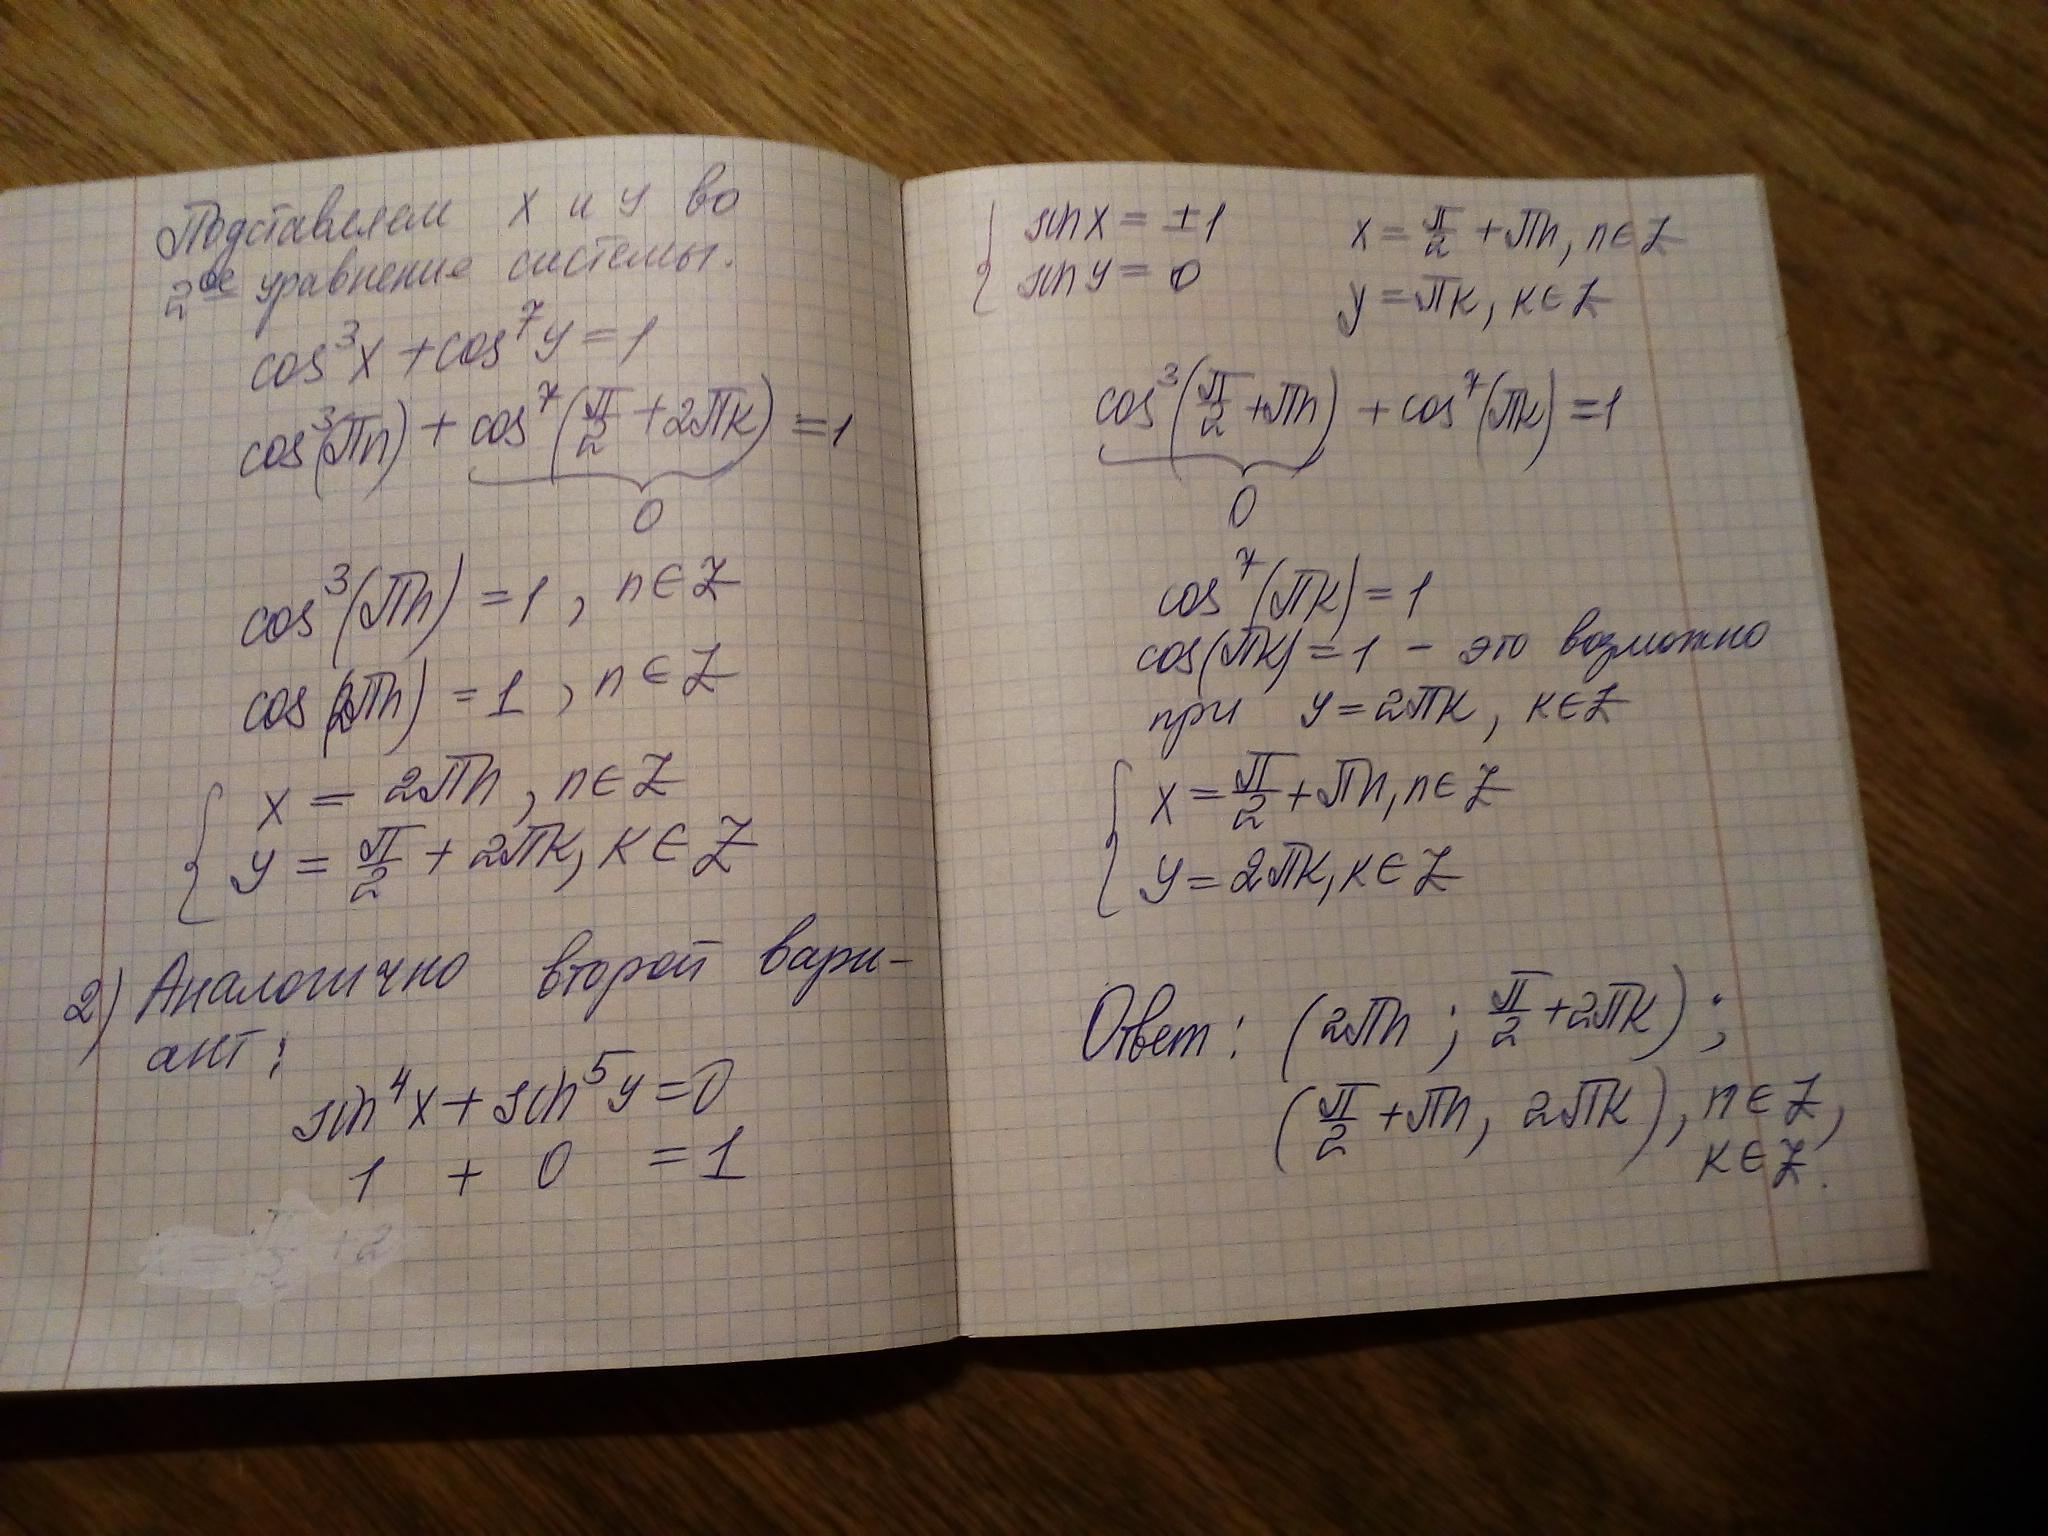 Подставляем x и y во
2ое уравнение системы.
cos³x + cos⁷y = 1
cos³(πn) + cos⁷(π/2 + 2πk) = 1
0
cos³(πn) = 1, n ∈ Z
cos(2πn) = 1, n ∈ Z
{ x = 2πn, n ∈ Z
y = π/2 + 2πk, k ∈ Z
2) Аналогично второй вари-
ант:
sin⁴x + sin⁵y = 0
1 + 0 = 1
{ sin x = ±1 x = π/2 + πn, n ∈ Z
sin y = 0 y = πk, k ∈ Z
cos³(π/2 + πn) + cos⁷(πk) = 1
0
cos⁷(πk) = 1
cos(πk) = 1 – это возможно
при y = 2πk, k ∈ Z
{ x = π/2 + πn, n ∈ Z
y = 2πk, k ∈ Z
Ответ: (2πn; π/2 + 2πk);
(π/2 + πn, 2πk), n ∈ Z,
k ∈ Z.